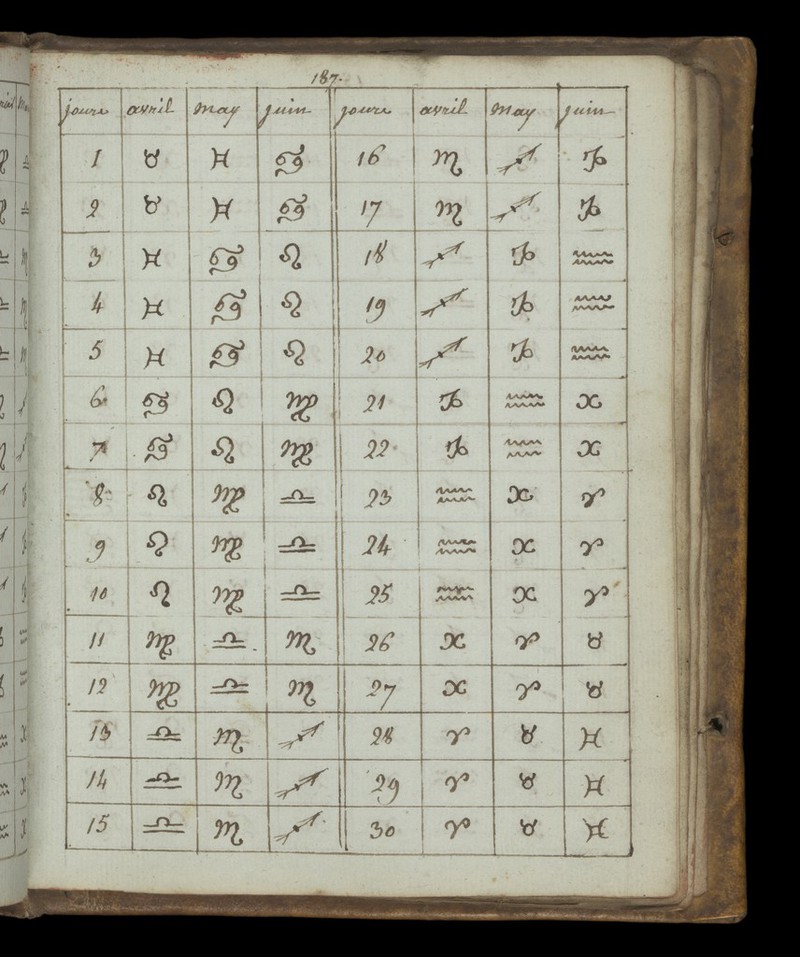 187.
jours avril may juin jours avril may juin
1 ♉ ♊ ♋ 16 ♏ ♐ ♑
2 ♉ ♊ ♋ 17 ♏ ♐ ♑
3 ♊ ♋ ♌ 18 ♐ ♑ ♒
4 ♊ ♋ ♌ 19 ♐ ♑ ♒
5 ♊ ♋ ♌ 20 ♐ ♑ ♒
6 ♋ ♌ ♍ 21 ♑ ♒ ♓
7 ♋ ♌ ♍ 22 ♑ ♒ ♓
8 ♌ ♍ ♎ 23 ♒ ♓ ♈
9 ♌ ♍ ♎ 24 ♒ ♓ ♈
10 ♌ ♍ ♎ 25 ♒ ♓ ♈
11 ♍ ♎ ♏ 26 ♓ ♈ ♉
12 ♍ ♎ ♏ 27 ♓ ♈ ♉
13 ♎ ♏ ♐ 28 ♈ ♉ ♊
14 ♎ ♏ ♐ 29 ♈ ♉ ♊
15 ♎ ♏ ♐ 30 ♈ ♉ ♊